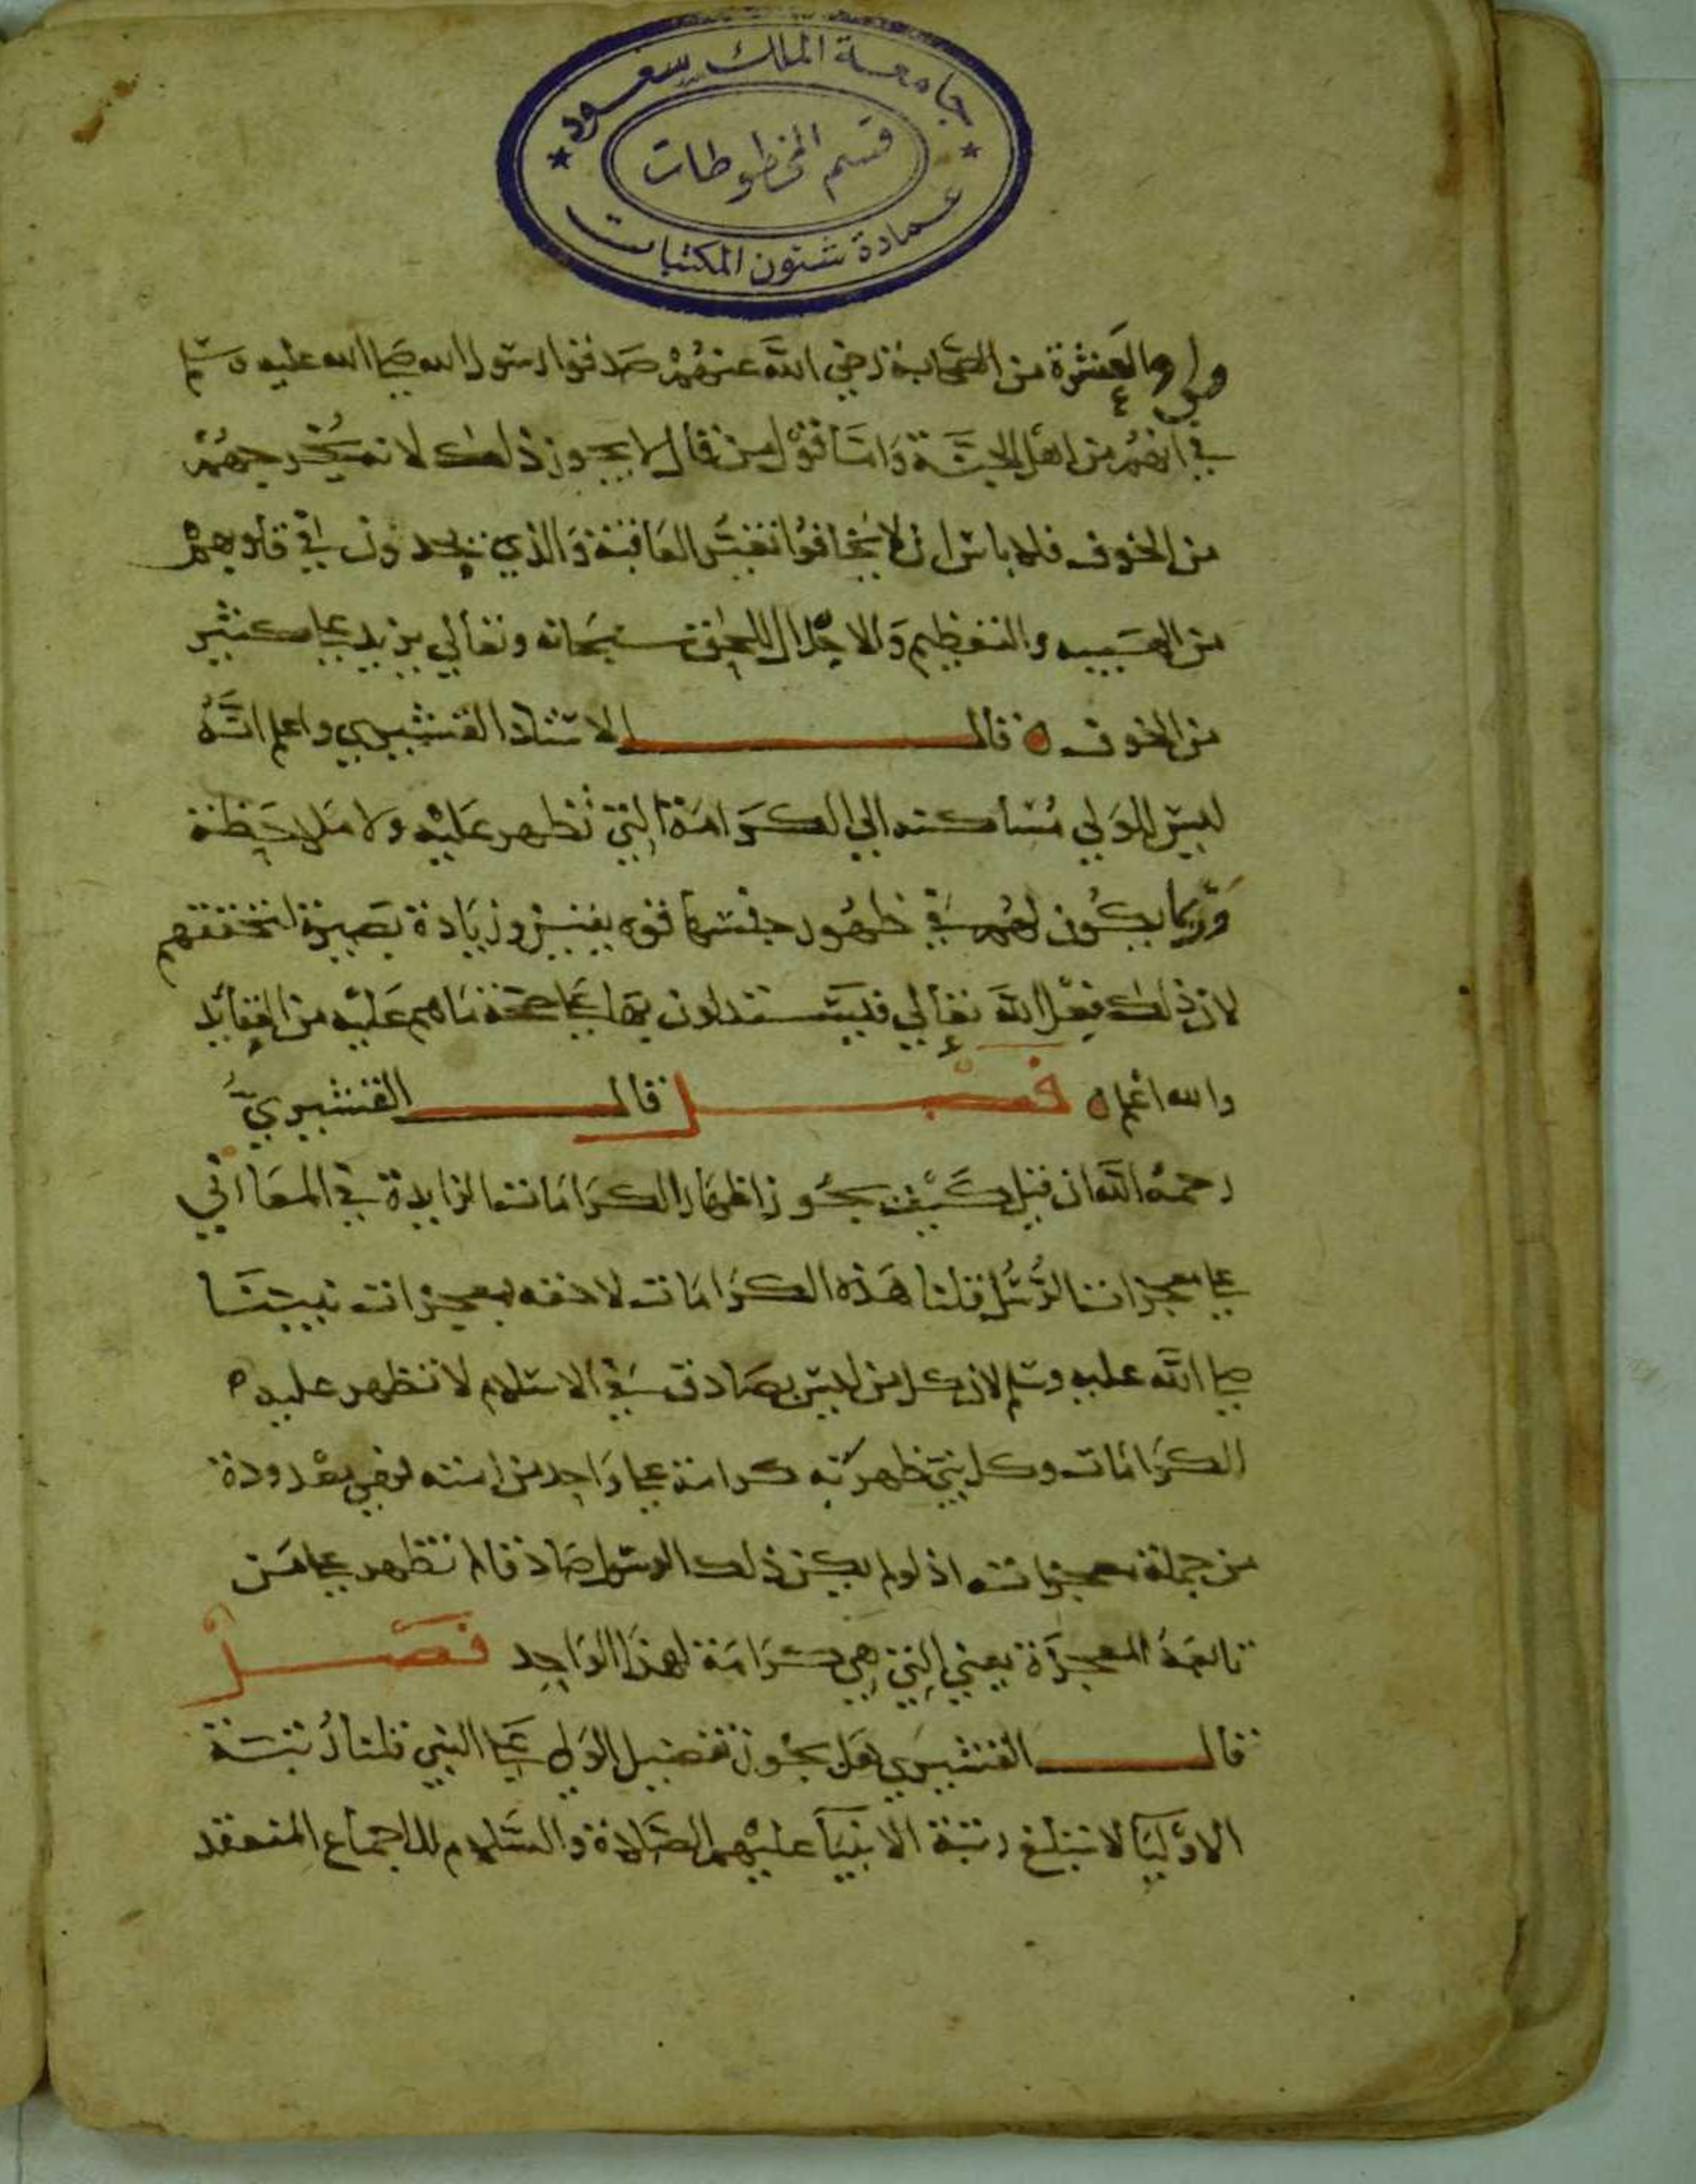 جامعة الملك سعود
قسم المخطوطات
عمادة شئون المكتبات
والعشرة من الصحابة رضي الله عنهم صدقوا رسول الله صلى الله عليه وسلم
في انهم من اهل الجنة وَامّا قوْل من قال لا يجوز ذلك لانه يُخرجهُمْ
من الخوف فلا باس ان لا يخافوُا تغيُّر العَاقبة وَالذي يجدون في قلوبهمْ
من الهَيبه والتعظيم وَالاجْلال للحق سبحَانه وتعَالي يزيد على كثير
من الخوف قال الاستاذ القشيري واعلم انَّهُ
ليسَ للوَلي مُسَاكنه الي الكرَامَة التي تظهر عَليْه ولا مَلاحَظة
وَرّبما يكُون لهُمْ في ظهُور جنسها قوه يقين وزيَادة بَصيرة لتحققهم
لان ذلك فِعْل الله تعَالي فيَستدلون بهَا عَلى صحّة مَا هم عَليْه من العقائد
والله اعْلم فَصْل قال القشيريُّ
رحمهُ الله ان قيل كيْف يجُوز اظهَار الكرَامَات الزايدة في المعَاني
على معجزات الرُّسُل قلنا هَذه الكرَامَات لاحقه بمعجزات نبيّنَا
صلى الله عليه وسلم لان كل من ليسَ بصَادق في الاسْلام لا تظهر عليه
الكرَامَات وكل نبي ظهرَتْ كرامة على وَاحِد من امته فهي معْدودة
من جملة معجزاته اذ لو لم يكن ذلك الرسول صَادقا لم تظهر على مَن
تابعَهُ المعجزَة يعني التي هي كرَامَة لهذَا الوَاحِد فَصَْل
قال القشيرَي هَل يجُوز تفضيل الوَلي عَلى النبي قلنا رُتبَة
الاوْليَا لا تبْلغ رتبَة الانبيَآ عليْهم الصَّلاة والسَّلام للاجماع المنعقد